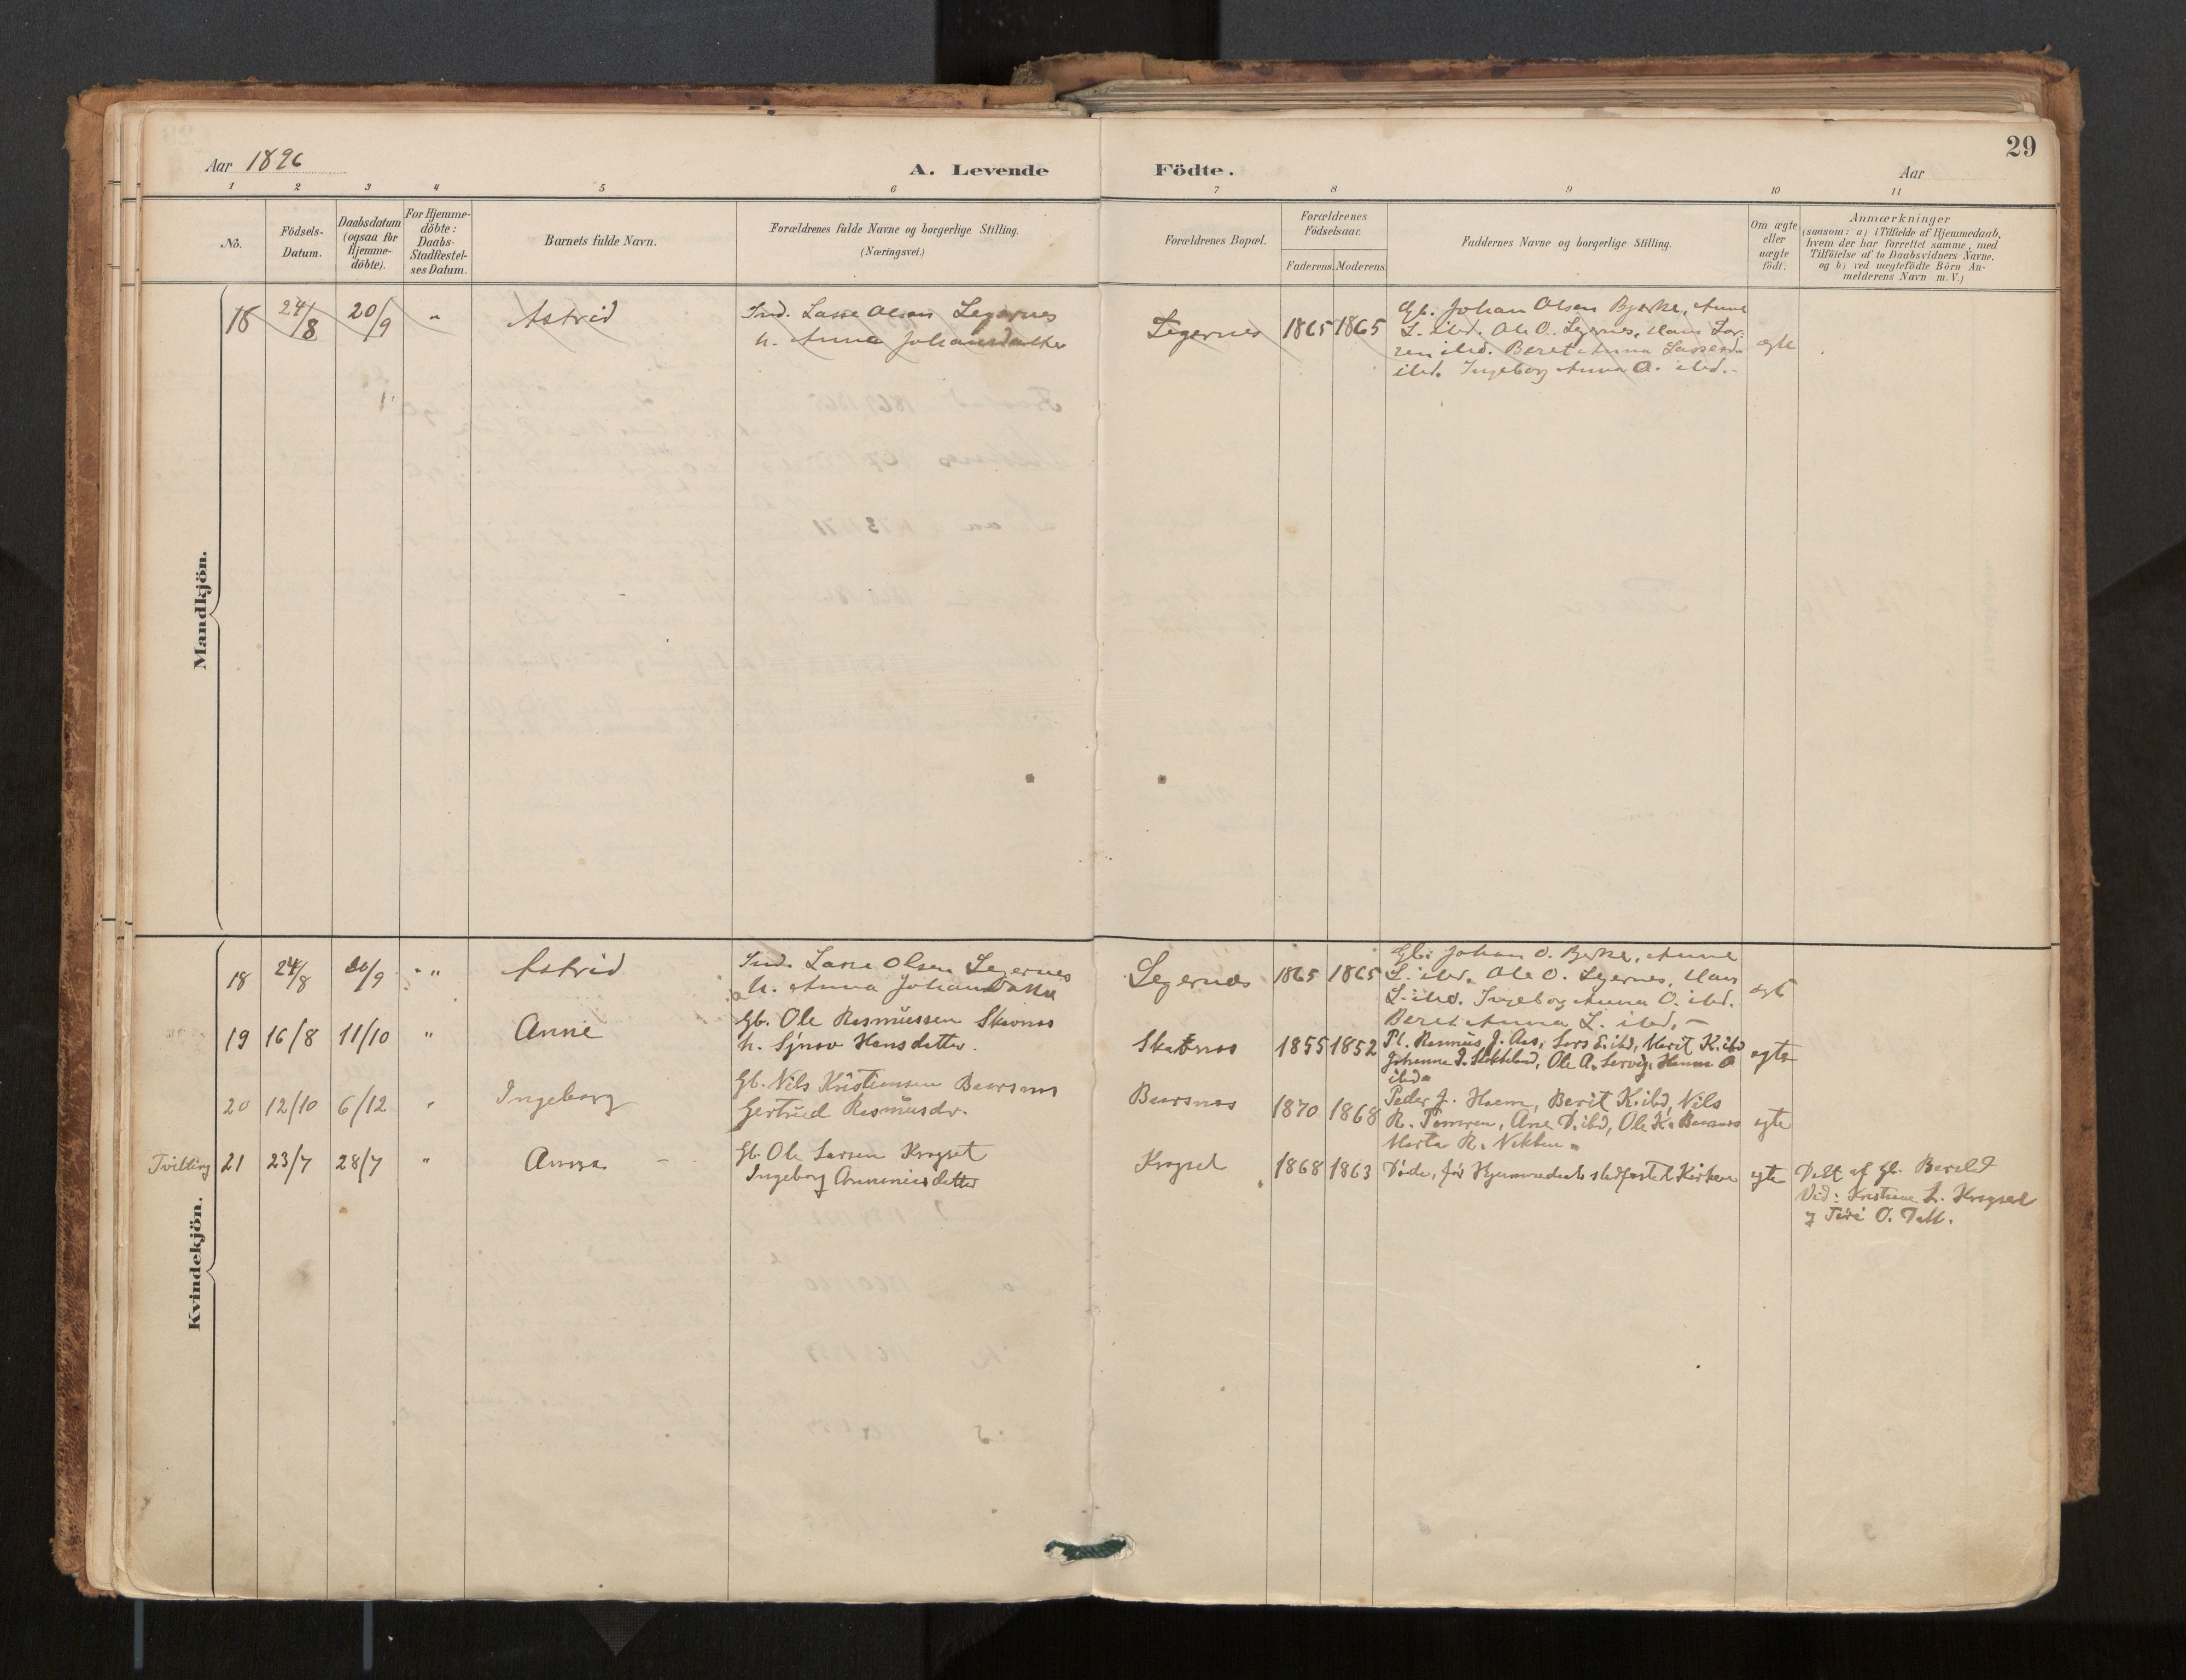 29
Aar 1896
A. Levende Födte.
Aar
1 2 3 4 5 6 7 8 9 10 11
No.
Födsels-
Datum.
Daabsdatum
(ogsaa for
Hjemme-
döbte).
For Hjemme-
döbte:
Daabs-
Stadfestel-
ses Datum.
Barnets fulde Navn.
Forældrenes fulde Navne og borgerlige Stilling.
(Næringsvei.)
Forældrenes Bopæl.
Forældrenes
Födselsaar.
Faderens. Moderens.
Faddernes Navne og borgerlige Stilling.
Om ægte
eller
uægte
födt.
Anmærkninger
(saasom: a) i Tilfælde af Hjemmedaab,
hvem der har forrettet samme, med
Tilföielse af to Daabsvidners Navne,
og b) ved uægtefödte Börn An-
melderens Navn m. V.)
Mandkjön.
18 24/8 20/9 " Astrid
Ind. Lasse Olsen Legernes
h. Anna Johansdatter
Legernes 1865 1865
Gb. Johan Olsen Bjerke, Anne
L. ibd. Ole O. Legernes, Hans Lar-
sen ibd. Beret Anna Lassesd.
ibd. Ingeborg Anna O. ibd. -
ægte
Kvindekjön.
18 24/8 20/9 " Astrid
Ind. Lasse Olsen Legernes
h. Anna Johansdatter
Legernes 1865 1865
Gb. Johan O. Bjerke, Anne
L. ibd. Ole O. Legernes, Hans
L. ibd. Ingeborg Anna O. ibd.
Beret Anna L. ibd. -
ægte
19 16/8 11/10 " Anne
Gb. Ole Rasmussen Skavnes
h. Synøv Hansdatter.
Skavnes 1855 1852
Pl. Rasmus J. Aas, Lars E. ibd, Marit K. ibd
Johanne J. , Ole A. , Hanna O
ibd.
egte
20 12/10 6/12 " Ingeborg
Gb. Nils Kristiansen Baarsnes
Gertrud Rasmusdr.
Baarsnes 1870 1868
Peder J. Hoem, Berit K. ibd, Nils
R. Tomren, Ane D. ibd, Ole K. Baarsnes
Marta R. Nekken.
egte
Tvilling 21 23/7 28/7 " Anna -
Gb. Ole Larsen Krogset
Ingeborg Ammunsdatter
Krogset 1868 1863
Døde, før Hjemmedaab stadfæstet i Kirken
egte
Døbt af Gb.
Vid: Kristiane L. Krogset
og O.